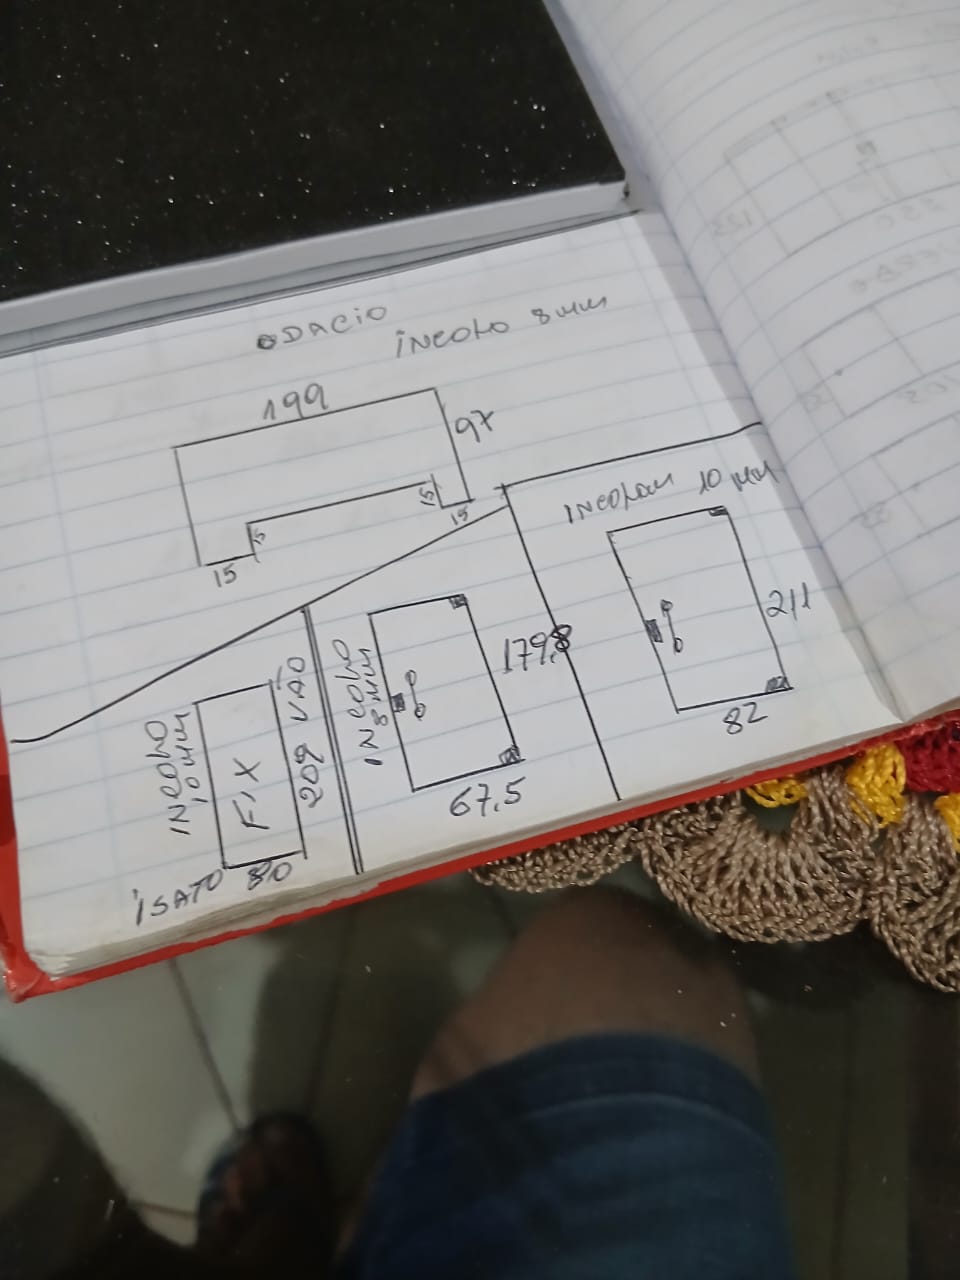 ODACIO
INCOLO 8 MM
199
97
15
15
15
15
INCOLOM 10 MM
211
82
INCOLO
8 MM
179,8
67,5
INCOLO
10 MM
FIX
209 VÃO
80
ISATO